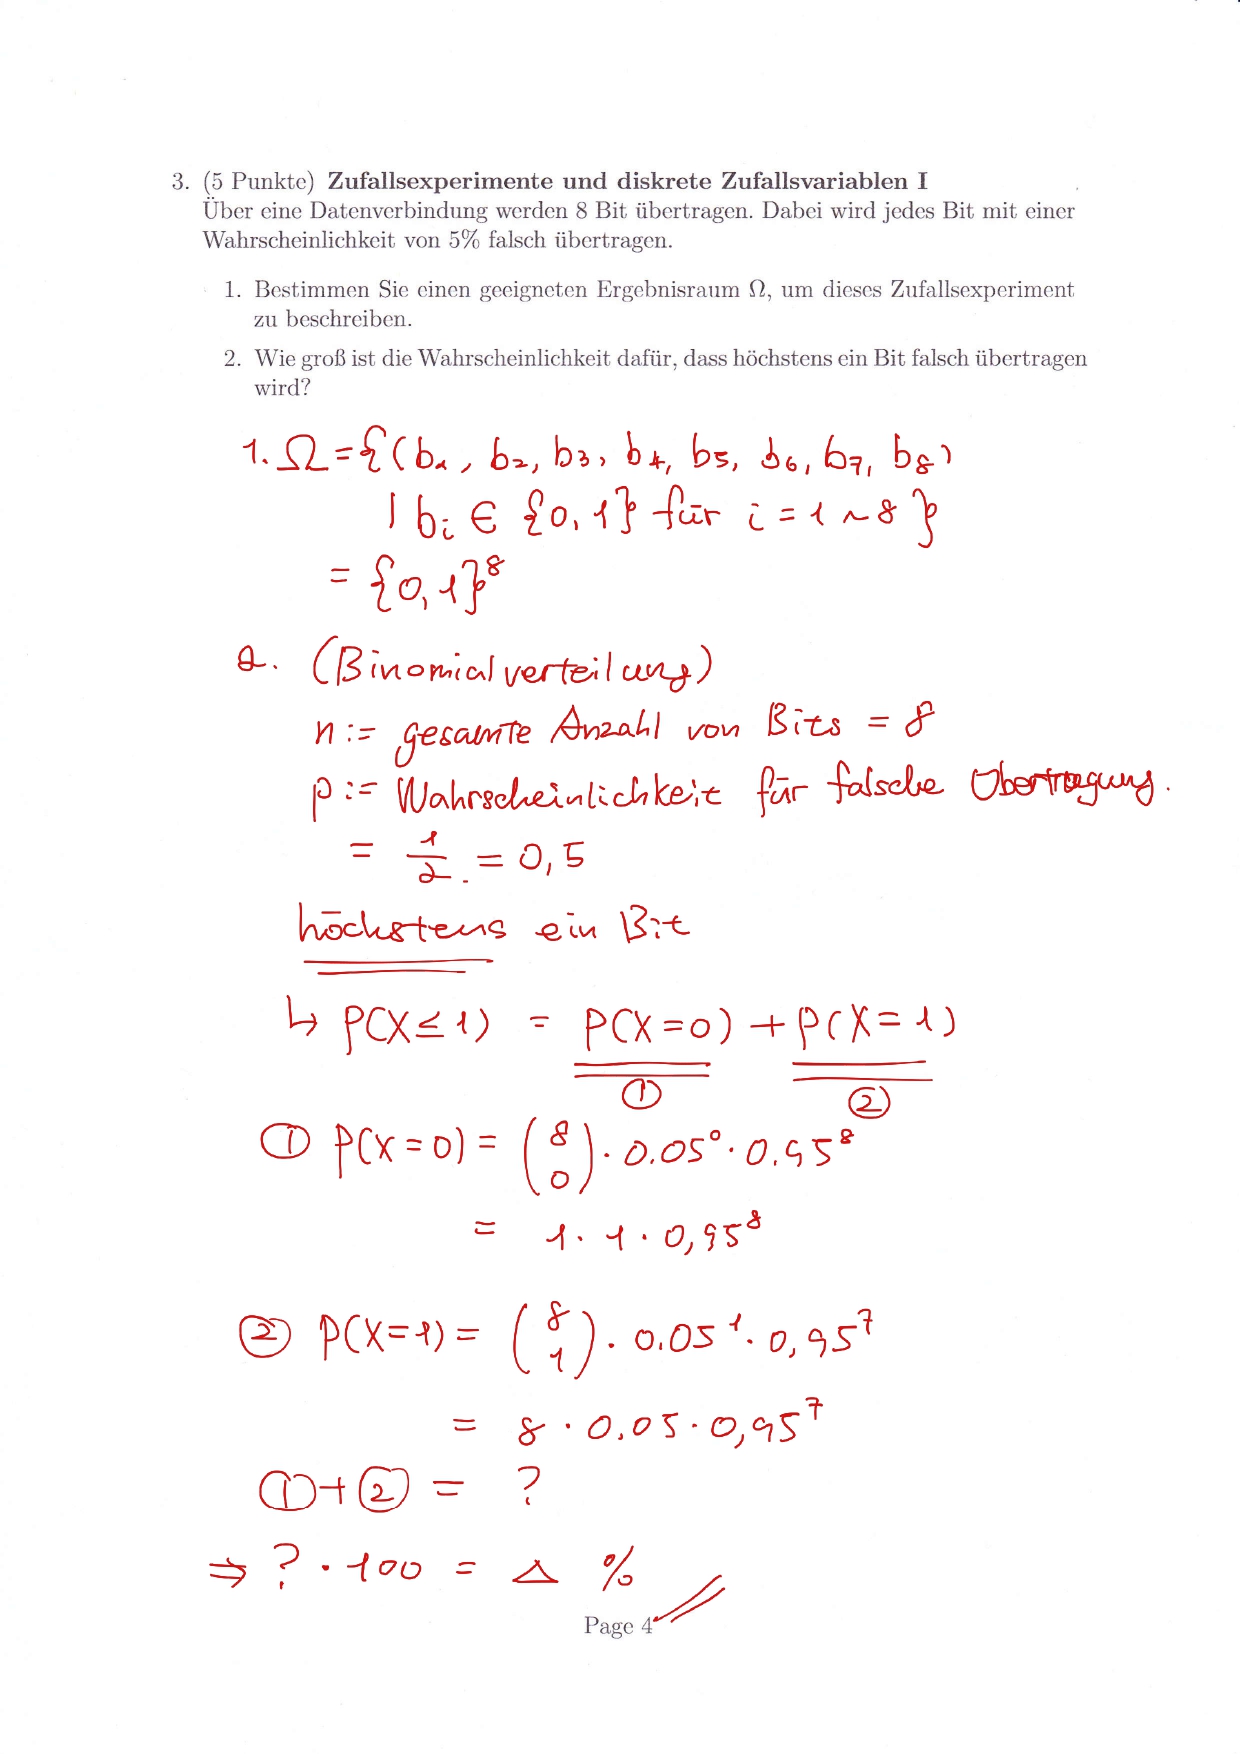 3. (5 Punkte) Zufallsexperimente und diskrete Zufallsvariablen I
Über eine Datenverbindung werden 8 Bit übertragen. Dabei wird jedes Bit mit einer
Wahrscheinlichkeit von 5% falsch übertragen.
1. Bestimmen Sie einen geeigneten Ergebnisraum Ω, um dieses Zufallsexperiment
zu beschreiben.
2. Wie groß ist die Wahrscheinlichkeit dafür, dass höchstens ein Bit falsch übertragen
wird?
1. Ω = {(b₁, b₂, b₃, b₄, b₅, b₆, b₇, b₈)
| bᵢ ∈ {0,1} für i = 1 ~ 8}
= {0,1}⁸
2. (Binomialverteilung)
n := gesamte Anzahl von Bits = 8
p := Wahrscheinlichkeit für falsche Übertragung.
= 1/2 = 0,5
höchstens ein Bit
↳ P(X ≤ 1) = P(X = 0) + P(X = 1)
① ②
① P(X = 0) = (8 0) · 0.05⁰ · 0.95⁸
= 1 · 1 · 0,95⁸
② P(X = 1) = (8 1) · 0.05¹ · 0,95⁷
= 8 · 0.05 · 0,95⁷
① + ② = ?
⇒ ? · 100 = △ %
Page 4